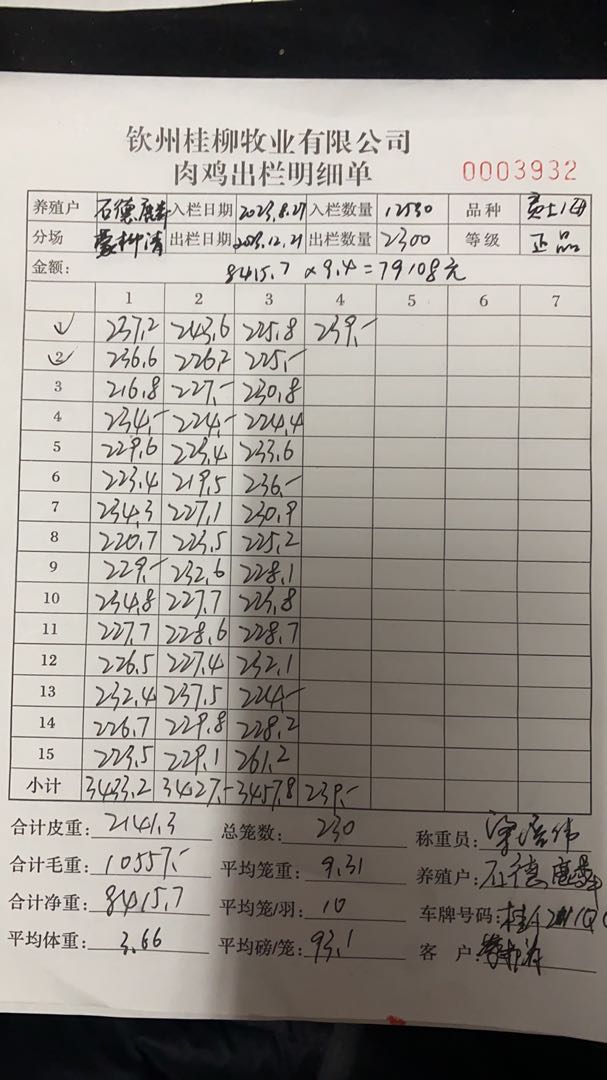 钦州桂柳牧业有限公司
肉鸡出栏明细单 0003932
养殖户 石德 入栏日期 2023.8.27 入栏数量 12530 品种
分场 出栏日期 2023.12.21 出栏数量 2300 等级 正品
金额: 8415.7 × 9.4 = 79108元
1 2 3 4 5 6 7
1 237.2 243.6 225.8 239.-
2 236.6 226.2 225.-
3 216.8 227.- 230.8
4 234.- 224.- 224.4
5 229.6 223.4 233.6
6 223.4 219.5 236.-
7 234.3 227.1 230.9
8 220.7 223.5 225.2
9 229.- 232.6 228.1
10 234.8 227.7 223.8
11 227.7 228.6 228.7
12 226.5 227.4 232.1
13 232.4 237.5 224.-
14 226.7 229.8 228.2
15 223.5 229.1 261.2
小计 3433.2 3427.- 3457.8 239.-
合计皮重: 2141.3 总笼数: 230 称重员:
合计毛重: 10557.- 平均笼重: 9.31 养殖户: 石德
合计净重: 8415.7 平均笼/羽: 10 车牌号码: 桂
平均体重: 3.66 平均磅/笼: 93.1 客户: